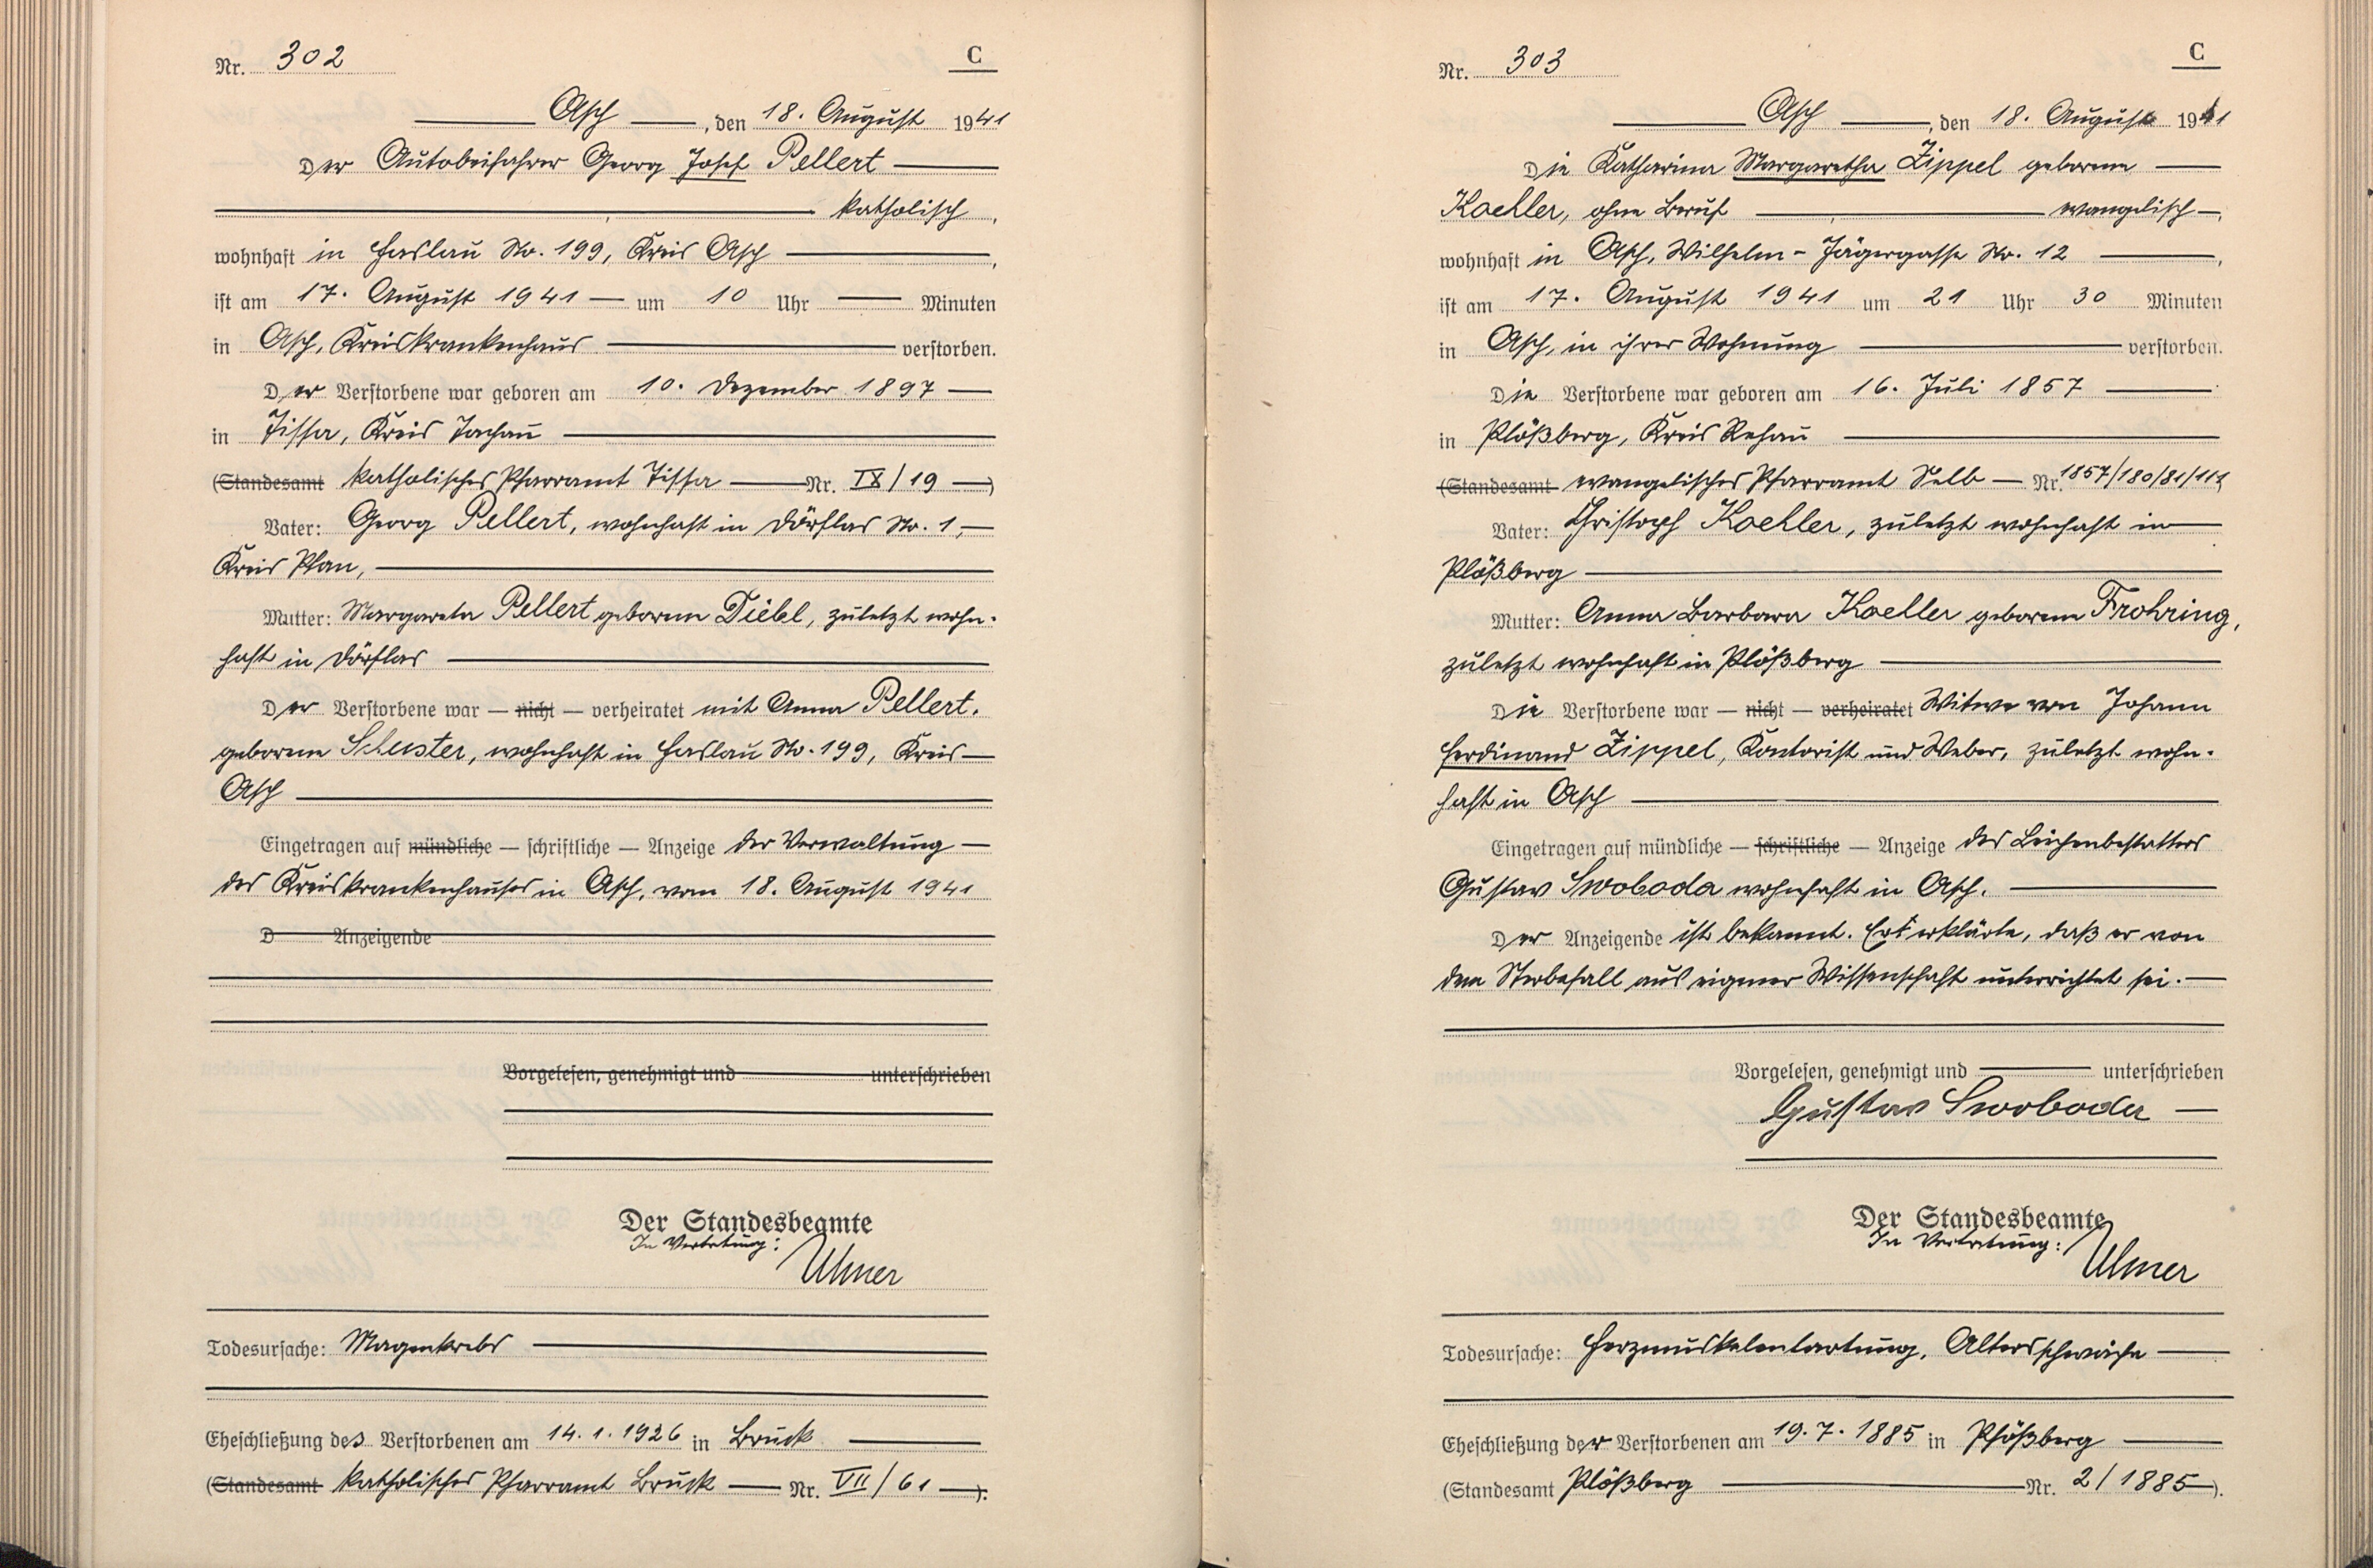 Nr. 302
C
Asch, den 18. August 1941
Der Autobeifahrer Georg Josef Pellert
katholisch,
wohnhaft in Haslau No. 199, Kreis Asch,
ist am 17. August 1941 um 10 Uhr Minuten
in Asch, Kreiskrankenhaus verstorben.
Der Verstorbene war geboren am 10. Dezember 1897
in Tissa, Kreis Tachau
(Standesamt katholisches Pfarramt Tissa Nr. IX/19)
Vater: Georg Pellert, wohnhaft in Dörflas No. 1,
Kreis Plan,
Mutter: Margareta Pellert geborene Diebl, zuletzt wohn-
haft in Dörflas
Der Verstorbene war — nicht — verheiratet mit Anna Pellert.
geborene Schuster, wohnhaft in Haslau No. 199, Kreis
Asch
Eingetragen auf mündliche — schriftliche — Anzeige der Verwaltung
des Kreiskrankenhauses in Asch, vom 18. August 1941
D Anzeigende
Vorgelesen, genehmigt und unterschrieben
Der Standesbeamte
In Vertretung:
Ulmer
Todesursache: Magenkrebs
Eheschließung des Verstorbenen am 14.1.1926 in Bruck
(Standesamt katholisches Pfarramt Bruck Nr. VII/61).
Nr. 303
C
Asch, den 18. August 1941
Die Katharina Margaretha Zippel geborene
Koehler, ohne Beruf evangelisch,
wohnhaft in Asch, Wilhelm-Jägergasse No. 12,
ist am 17. August 1941 um 21 Uhr 30 Minuten
in Asch, in ihrer Wohnung verstorben.
Die Verstorbene war geboren am 16. Juli 1857
in Plößberg, Kreis Rehau
(Standesamt evangelisches Pfarramt Selb — Nr. 1857/180/81/111)
Vater: Christoph Koehler, zuletzt wohnhaft in
Plößberg
Mutter: Anna Barbara Koehler geborene Frohring,
zuletzt wohnhaft in Plößberg
Die Verstorbene war — nicht — verheiratet Witwe von Johann
Ferdinand Zippel, Kontorist und Weber, zuletzt wohn-
haft in Asch
Eingetragen auf mündliche — schriftliche — Anzeige des Leichenbestatters
Gustav Swoboda wohnhaft in Asch.
Der Anzeigende ist bekannt. Er erklärte, daß er von
dem Sterbefall aus eigener Wissenschaft unterrichtet sei.
Vorgelesen, genehmigt und unterschrieben
Gustav Swoboda
Der Standesbeamte
In Vertretung:
Ulmer
Todesursache: Herzmuskelentartung, Altersschwäche
Eheschließung der Verstorbenen am 19.7.1885 in Plößberg
(Standesamt Plößberg Nr. 2/1885).